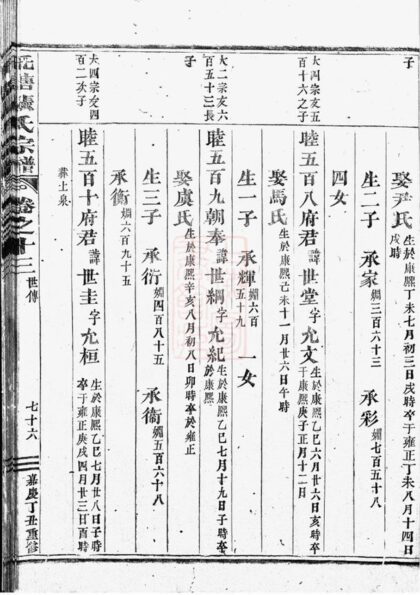 娶尹氏 生於康熙丁未七月初三日戌時卒于雍正丁未八月十四日
戌時
生二子 承家 綱三百六十三 承彩 綱七百五十八
四女
大四宗友五
百十六之子
睦五百八府君 諱世堂字允文 生於康熙乙巳六月廿六日亥時卒
于康熙庚子正月十二日
娶馬氏 生於康熙己未十一月廿六日午時
生一子 承輝 綱六百
五十九 一女
大二宗友六
百五十三長
子
睦五百九朝奉 諱世綱字允紀 生於康熙乙巳七月十九日子時
卒於康熙
娶虞氏 生於康熙辛亥八月初八日卯時卒於雍正
生三子 承衍 綱四百八十五 承衞 綱五百六十八
承衡 綱六百九十五
大四宗友四
百二次子
睦五百十府君 諱世圭字允桓 生於康熙乙巳七月廿八日子時
卒于雍正庚戌四月廿三日酉時
葬土泉
氏宗譜 卷之十三 世傳 七十六 嘉庚丁丑重修